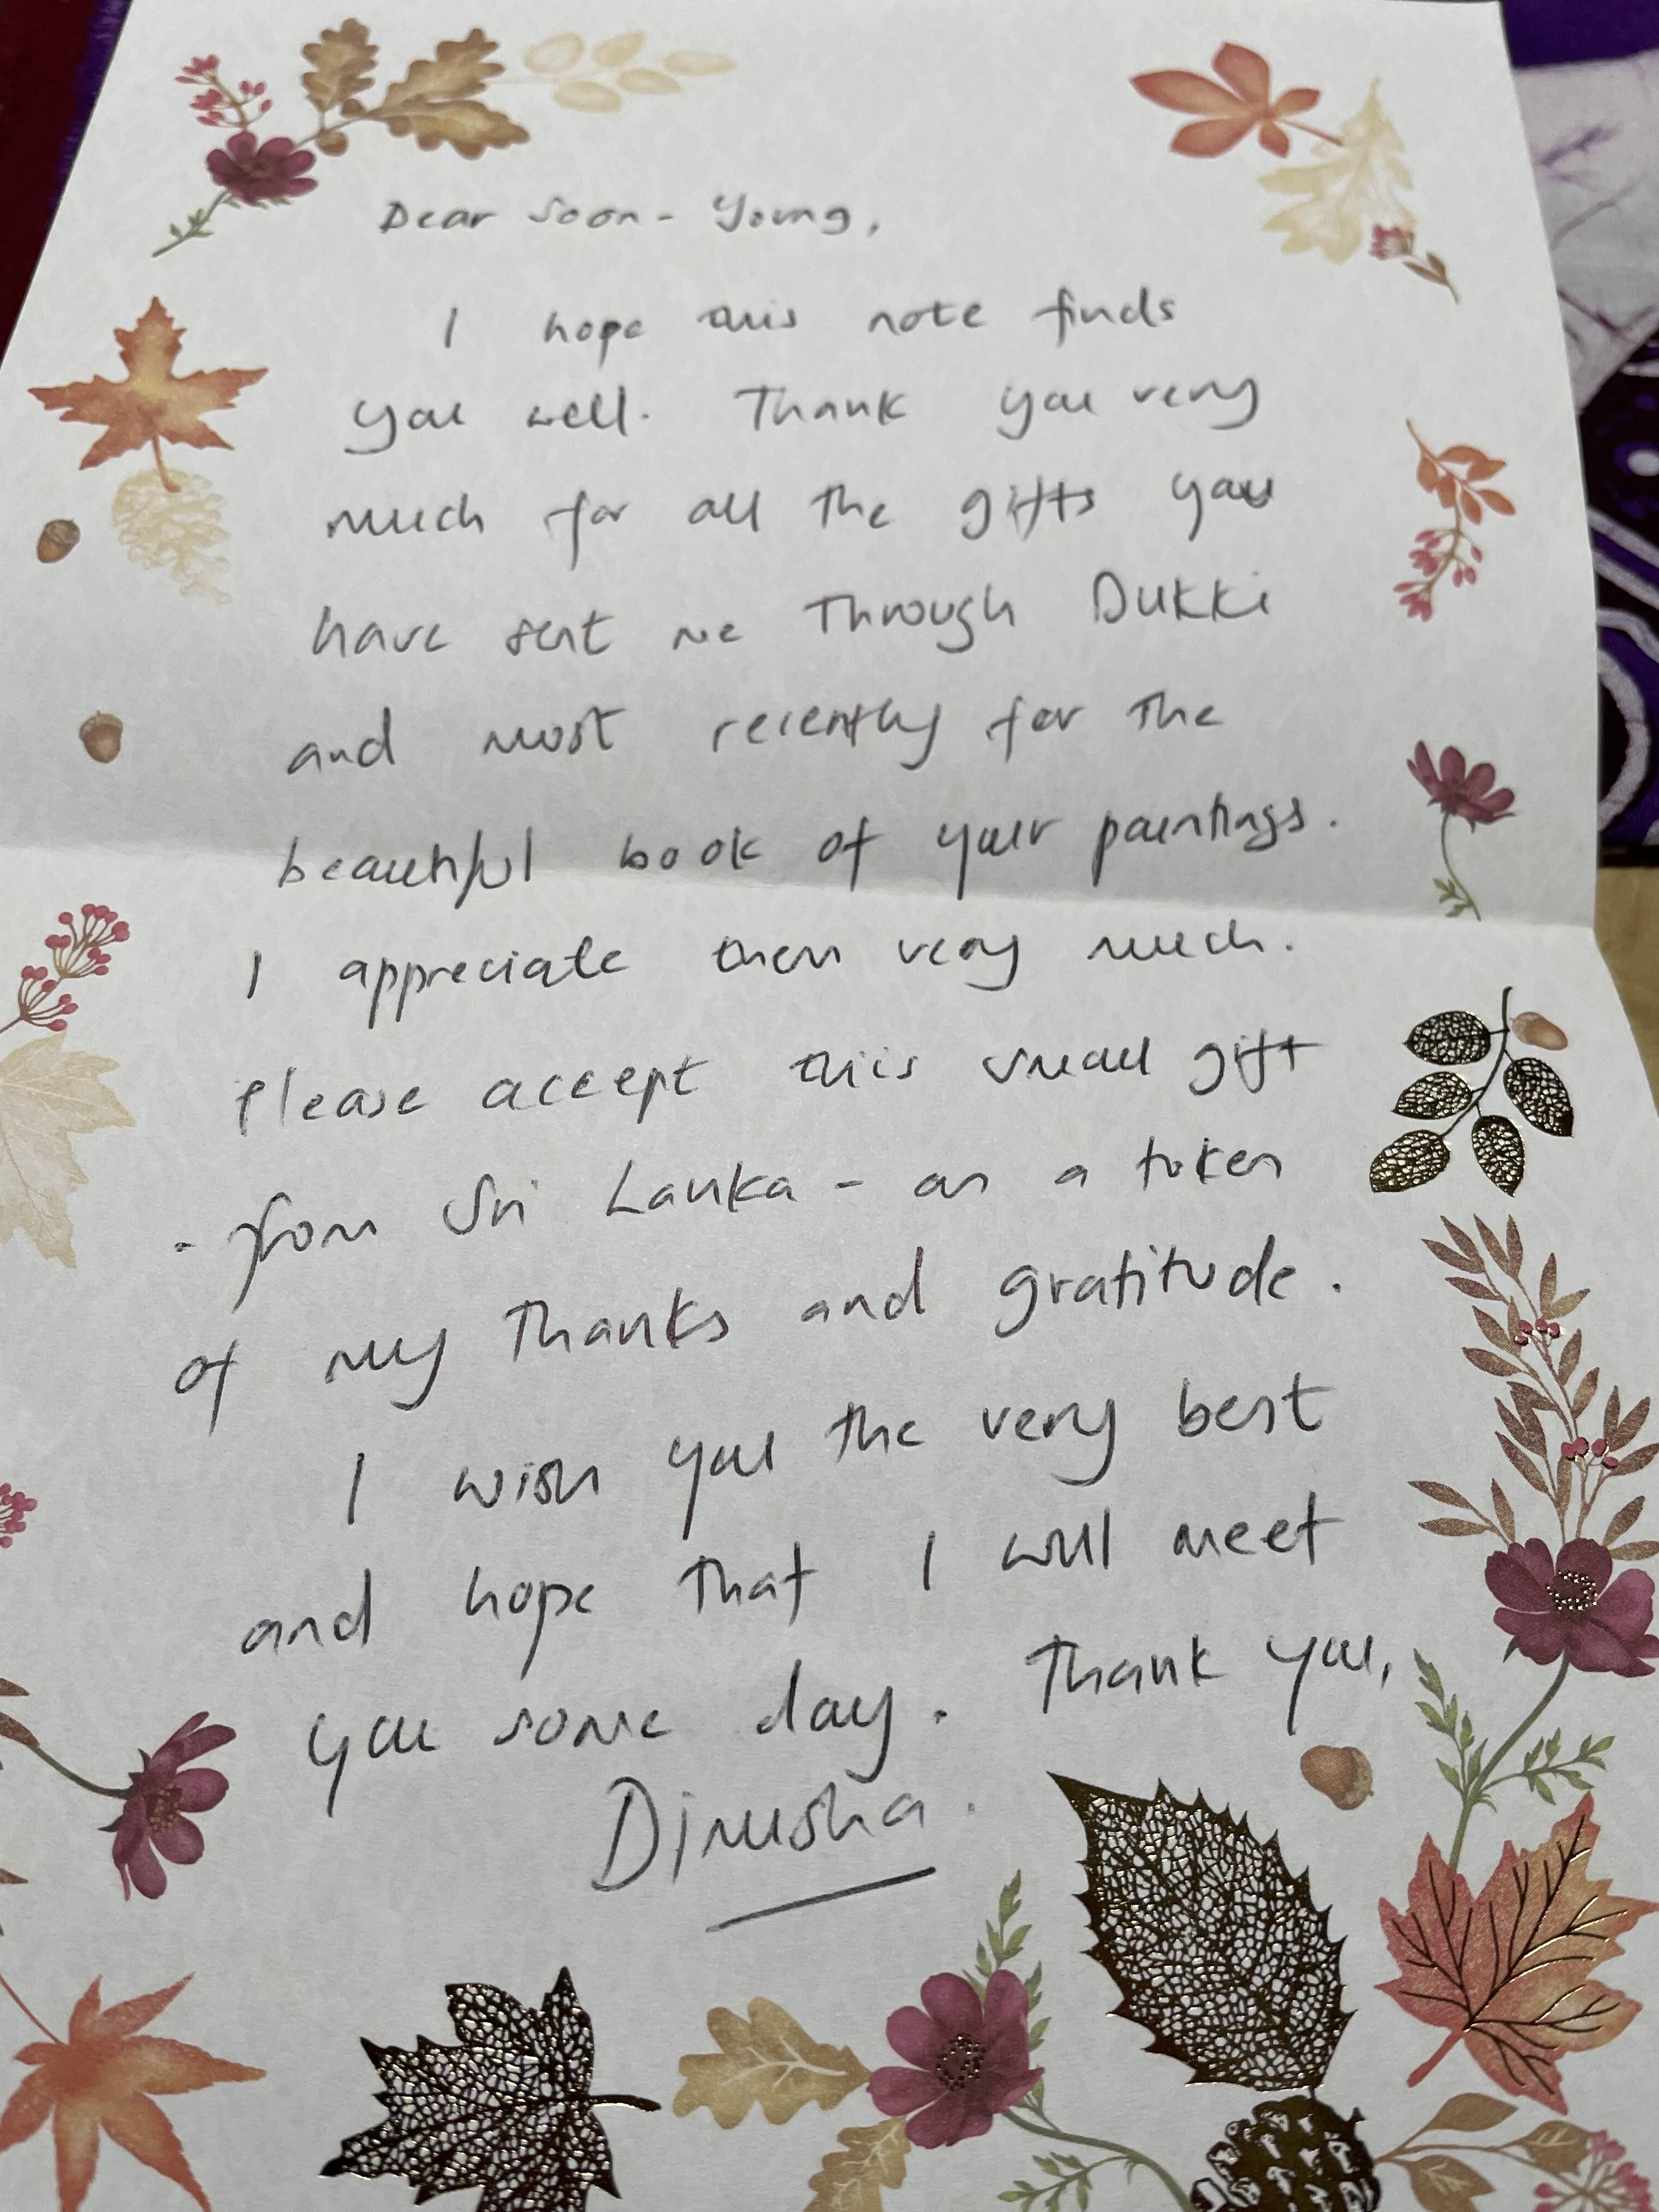 Dear Soon-Young,
I hope this note finds
you well. Thank you very
much for all the gifts you
have sent me through Dukki
and most recently for the
beautiful book of your paintings.
I appreciate them very much.
Please accept this small gift
- from Sri Lanka - as a token
of my thanks and gratitude.
I wish you the very best
and hope that I will meet
you some day. Thank you,
Dinusha.